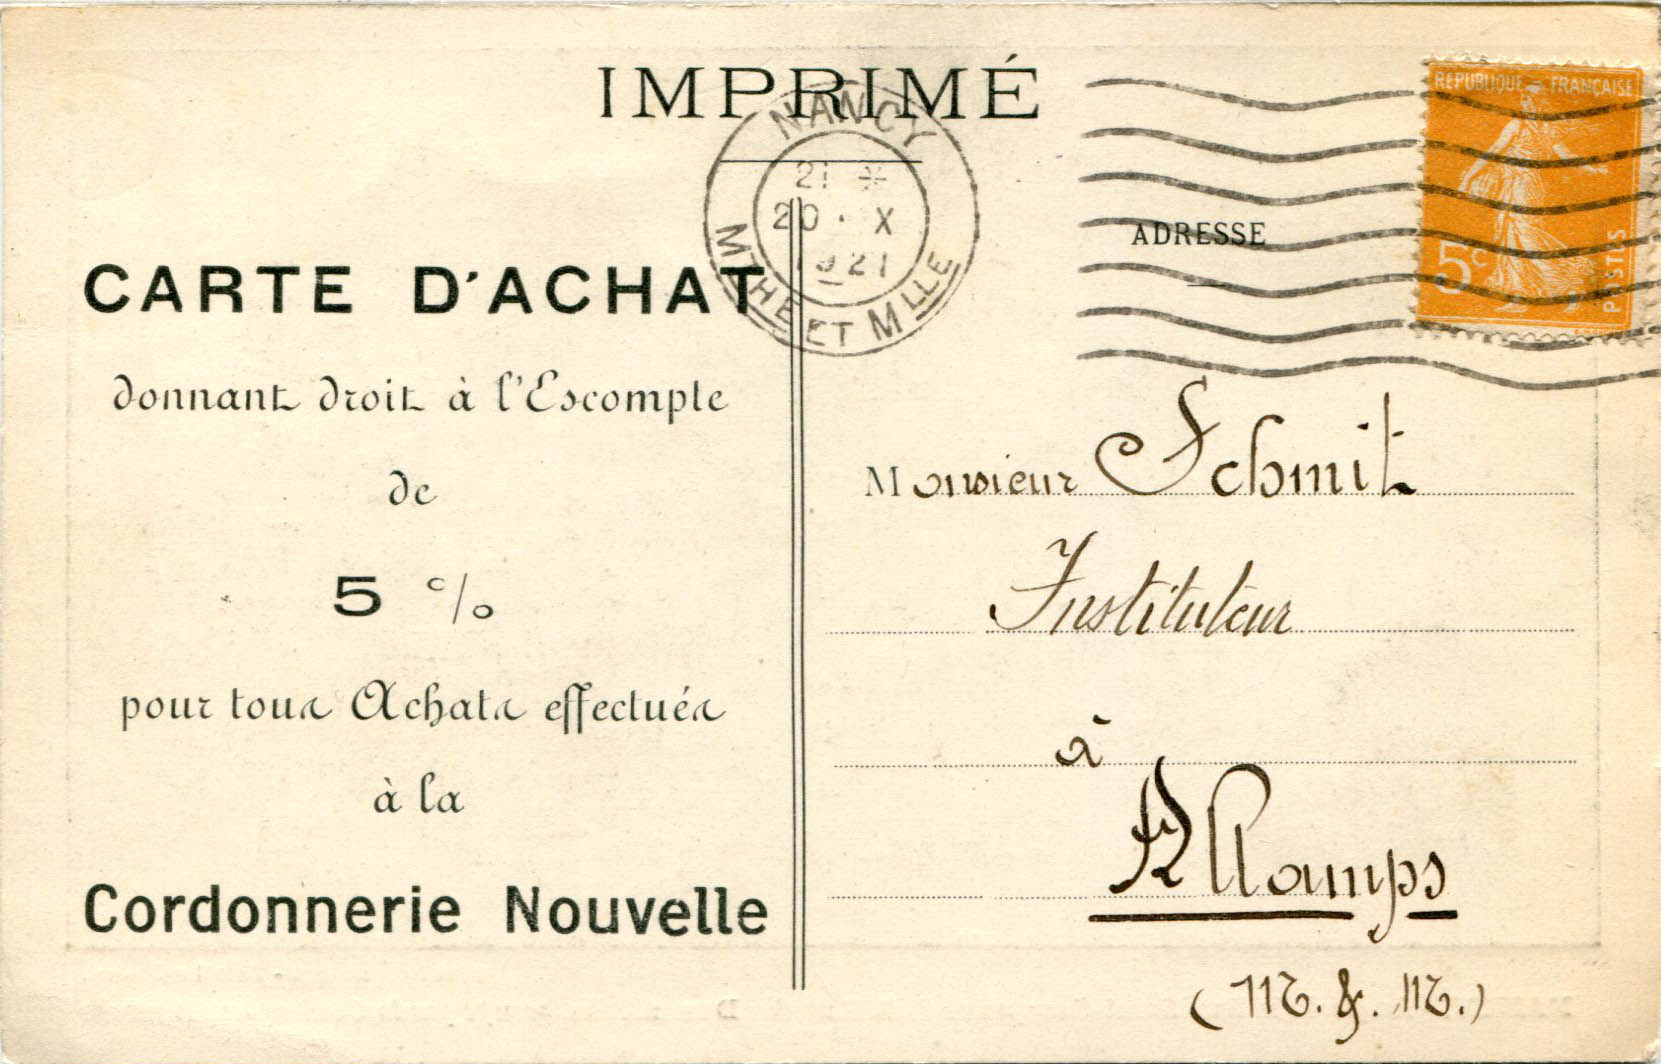 IMPRIMÉ
NANCY
21 *
20 · X
1921
MTHE ET MLLE
REPUBLIQUE FRANÇAISE
5c
POSTES
ADRESSE
CARTE D'ACHAT
donnant droit à l'Escompte
de
5 %
pour tous Achats effectués
à la
Cordonnerie Nouvelle
Monsieur Schmit
Instituteur
à
Allamps
(M. & M.)